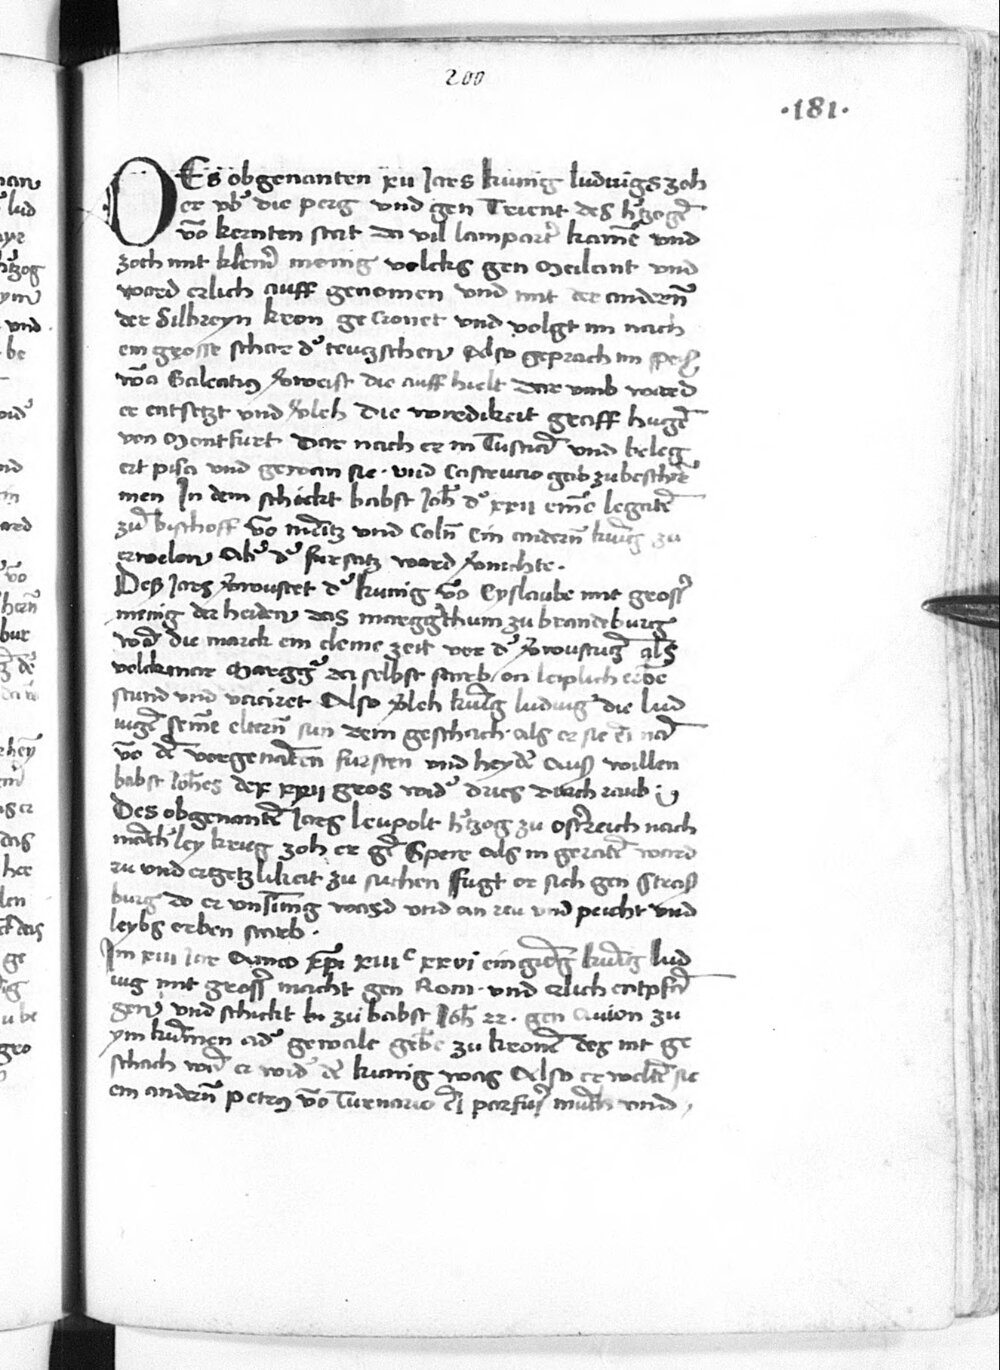 200
·181·
DEs obgenanten xii Jars kunig ludwigs zoh
er vbˀ die perg vnd gen Trient des hˀtzogē
vō kernten stat da vil lampartˀ kamē vnd
zoch mit klemˀ menig volcks gen Meilant vnd
ward erlich auff genomen vnd mit der andernn
der Silbreyn kron ge cronet vnd volgt im nach
ein grosse schar dˀ teutzschen Also geprach im speiß
wā Galeatius vˀweist die auff hielt dar vmb ward
er entsetzt vnd vˀleh die wirdikeit graff hugē
von Montfurt dar nach er in Tusciā vnd beleg
ert pisa vnd gewan sie · vnd Castrucio gab zu beschir
men In dem schickt babst Joh̄ dˀ xxii einē legatē
zū bischoff vō mētz vnd Coln̄ Ein andern̄ kunig zu
erwelen Abˀ dˀ fursatz ward vˀnichte ·
Deß Jars vˀwustet dˀ kunig vō Cyslaube mit grossˀ
menig der heiden das marggthum zu brandeburg
wā die marck ein cleine zeit vor dˀ vˀwustung als
volckmar Marggˀ da selbst starb on leiplich erbē
stund vnd vaciret Also vˀleh kunig ludwig die lud
wigē seinē eltern̄ sun Dem geschach · als er sie
vō dē vorgenātēn fursten vnd heydē auß willen
babst Joh̄es der xxii gros widˀ dries durch raub
Des obgenantē Jars leupolt hˀtzog zu ostˀreich nach
māchˀley krieg zoh er gē Speir als in geratē ward
ru vnd ergetzlikeit zu suchen fugt er sich gen Straß
burg do er vnsinnig ward vnd an reu vnd peicht vnd
leybs erben starb ·
Im xiii Jar Anno xp̄i xiiiᶜ xxvi eingieng kunig lud
wig mit grossˀ macht gen Rom · vnd erlich entpfā
gen vnd schickt zu babst Joh̄ 22 · gen Auion zu
ym kumen adˀ gewalt gebē zu kronē des nit ge
schach wā er widˀ dē kunig was Also erweltē sie
ein andern̄ petrus vō Turnario parfuß munch vnd